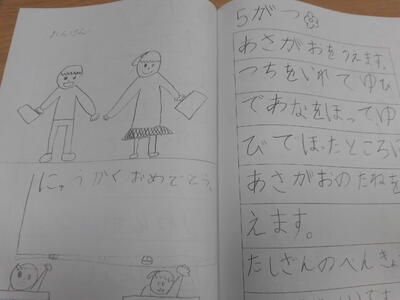 にゅうがくおめでとう。
5がつ
あさがおをうえます。
つちをいれてゆび
であなをほってゆ
びでほったところに
あさがおのたねを
えます。
たしざんのべんきょ